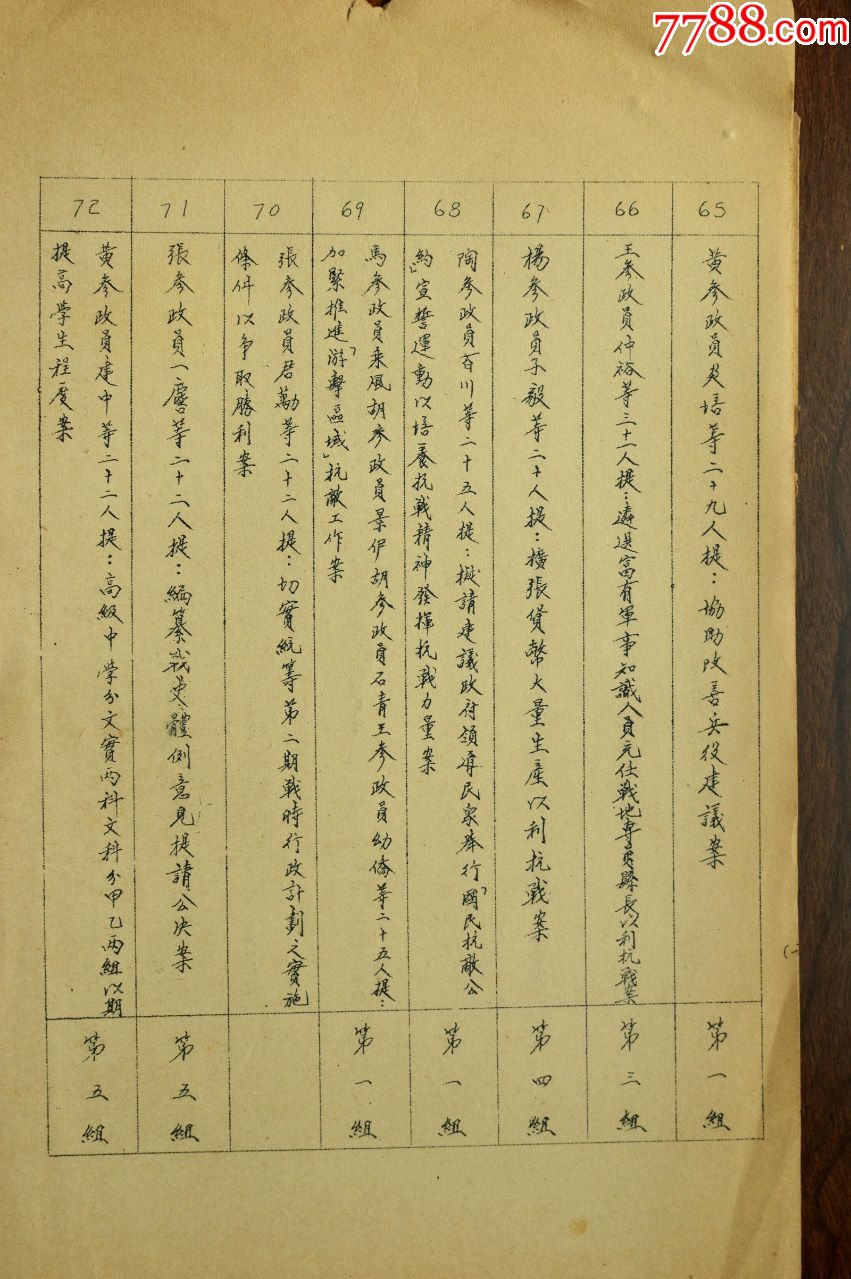 7788.com
65
黄參政員炎培等二十九人提：協助改善兵役建議案
第一組
66
王參政員仲裕等三十一人提：遴選富有軍事知識人員充任戰地專員縣長以利抗戰案
第三組
67
楊參政員子毅等二十人提：擴張貨幣大量生產以利抗戰案
第四組
68
陶參政員百川等二十五人提：擬請建議政府領導民眾舉行「國民抗敵公
約」宣誓運動以培養抗戰精神發揮抗戰力量案
第一組
69
馬參政員乘風胡參政員景伊胡參政員石青王參政員幼僑等二十五人提：
加緊推進「游擊區域」抗敵工作案
第一組
70
張參政員君勱等二十二人提：切實統籌第二期戰時行政計劃之實施
條件以争取勝利案
71
張參政員一麐等二十二人提：編纂戰史體例意見提請公决案
第五組
72
黄參政員建中等二十二人提：高級中学分文實両科文科分甲乙両組以期
提高学生程度案
第五組